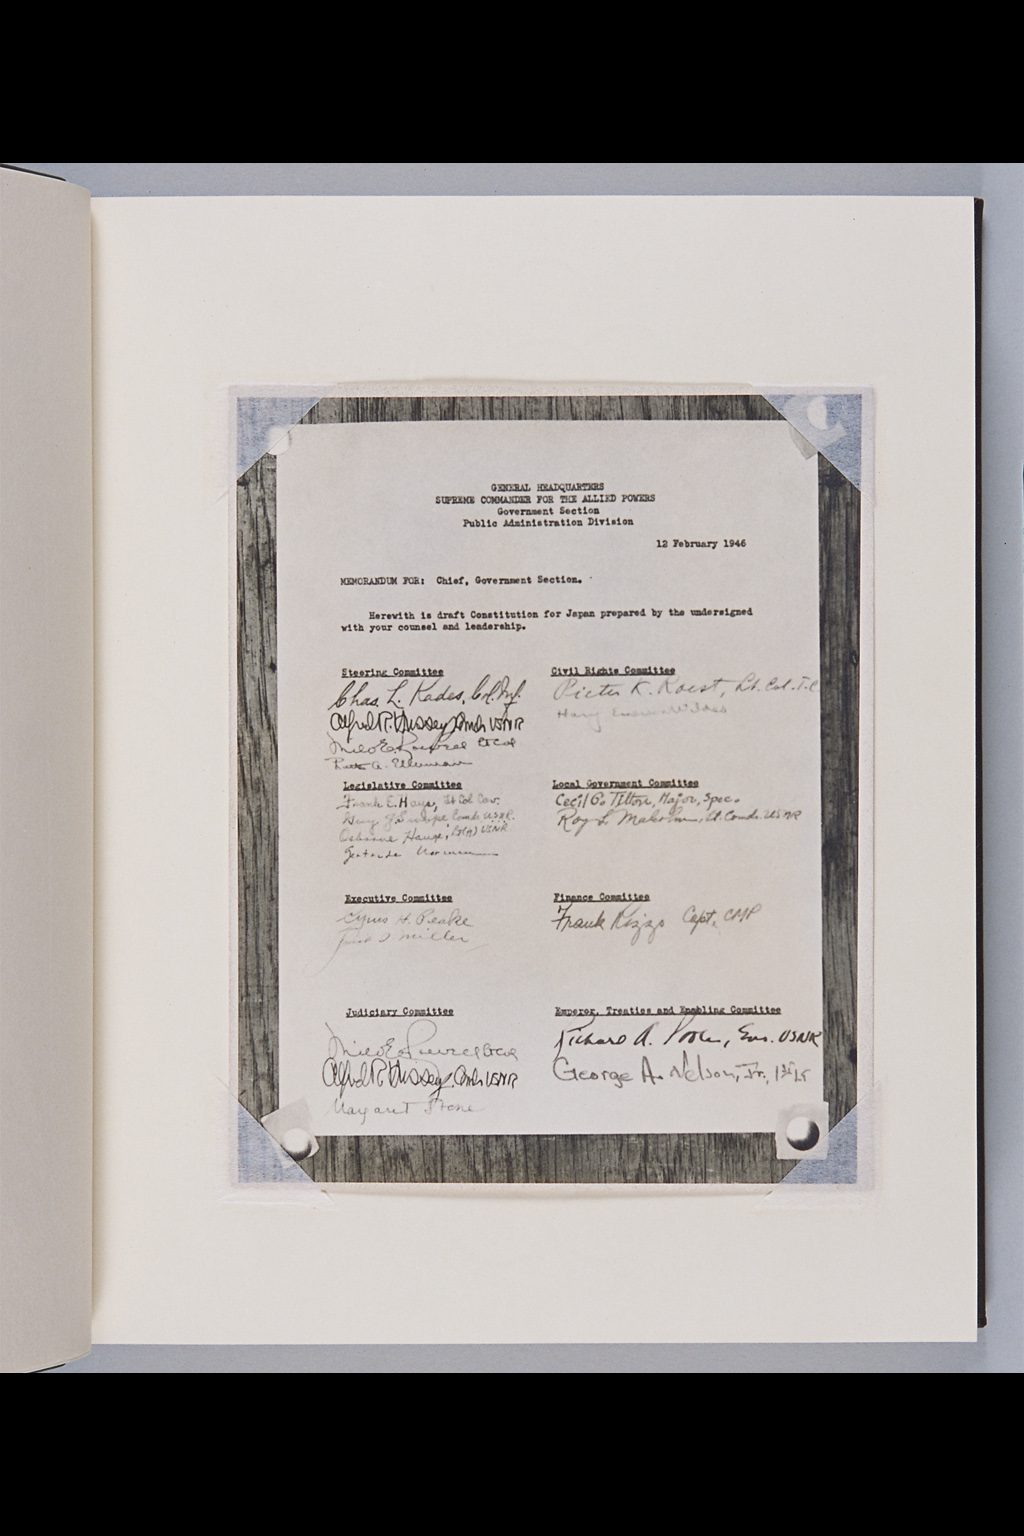 GENERAL HEADQUARTERS
SUPREME COMMANDER FOR THE ALLIED POWERS
Government Section
Public Administration Division
12 February 1946
MEMORANDUM FOR: Chief, Government Section.
Herewith is draft Constitution for Japan prepared by the undersigned
with your counsel and leadership.
Steering Committee
Chas. L. Kades, Col. Inf.
Alfred R. Hussey, Comdr USNR
Milo E. Rowell Lt Col
Ruth A. Ellerman
Civil Rights Committee
Pieter K. Roest, Lt. Col.
Harry Emerson Wildes
Legislative Committee
Frank E. Hays, Lt Col Cav.
Guy J. Swope Comdr. USNR.
Osborne Hauge, Lt(jg) USNR
Gertrude Norman
Local Government Committee
Cecil G. Tilton, Major, Spec.
Roy L. Malcolm, Lt. Comdr. USNR
Executive Committee
Cyrus H. Peake
Miller
Finance Committee
Frank Rizzo Capt, CMP
Judiciary Committee
Milo E. Rowell Lt Col
Alfred R. Hussey, Comdr USNR
Margaret Stone
Emperor, Treaties and Enabling Committee
Richard A. Poole, Ens. USNR
George A. Nelson, Jr., 1st Lt